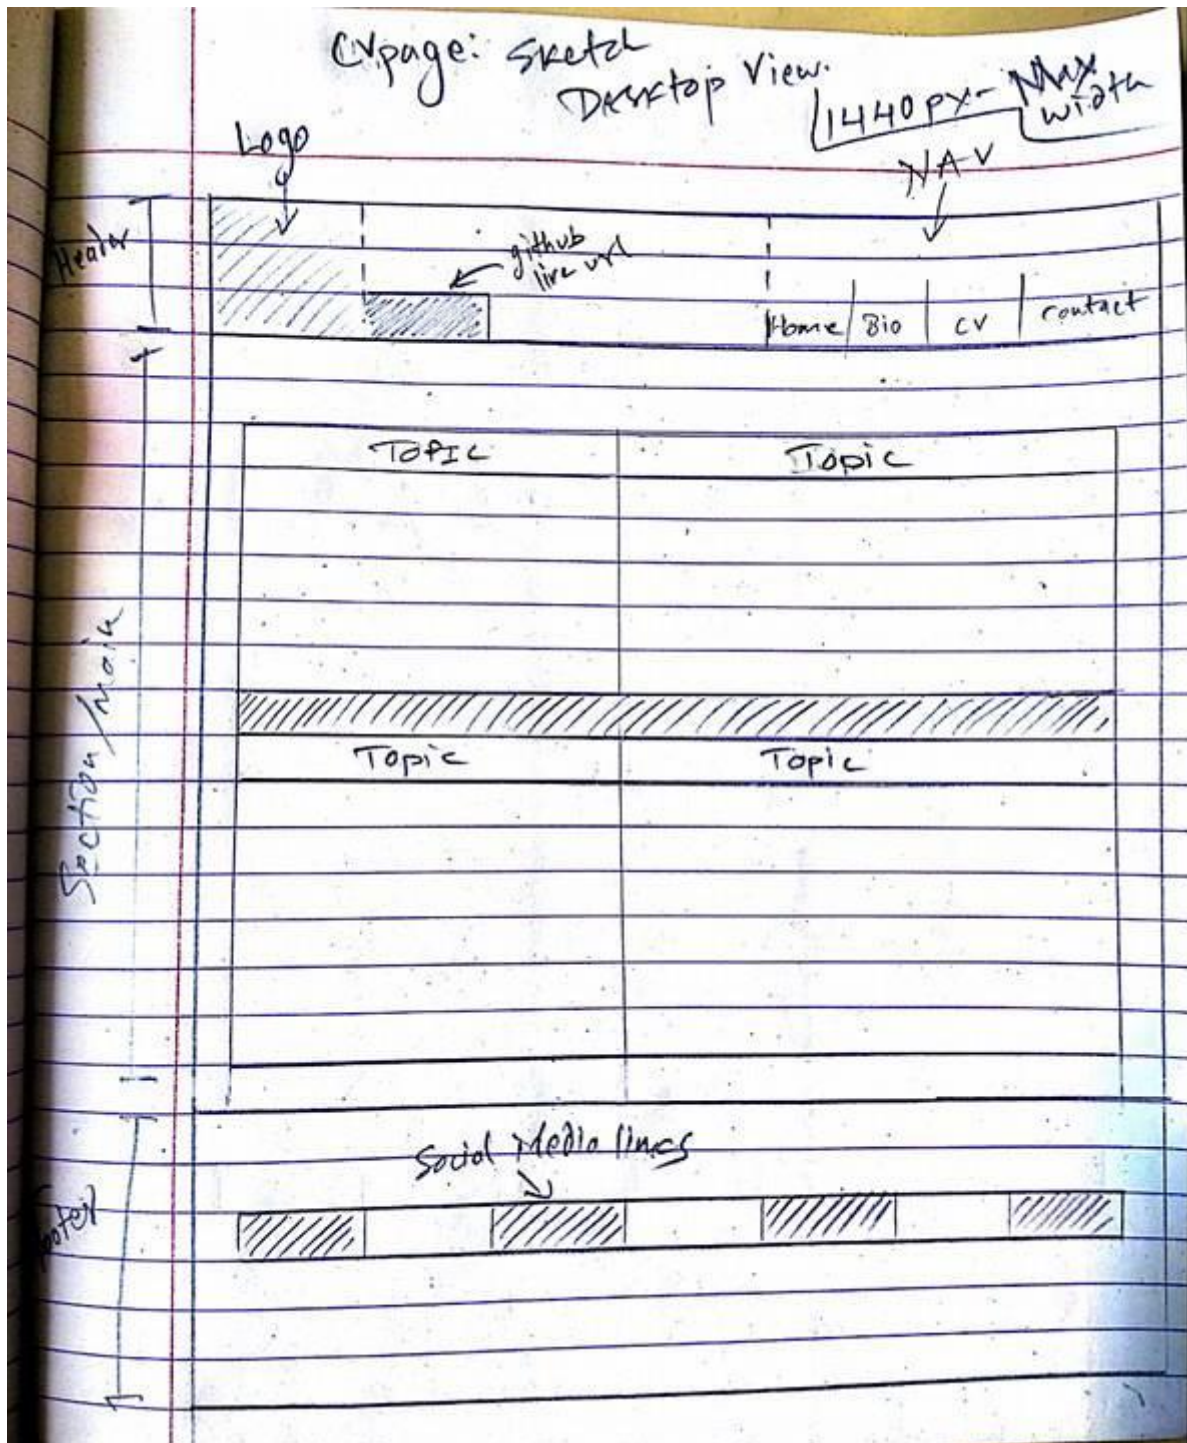 CV page: Sketch
Desktop View.
1440px - Max
width
Logo
NAV
Header
github
live url
Home
Bio
CV
contact
TOPIC
Topic
Section/Main
Topic
Topic
Social Media lines
Footer